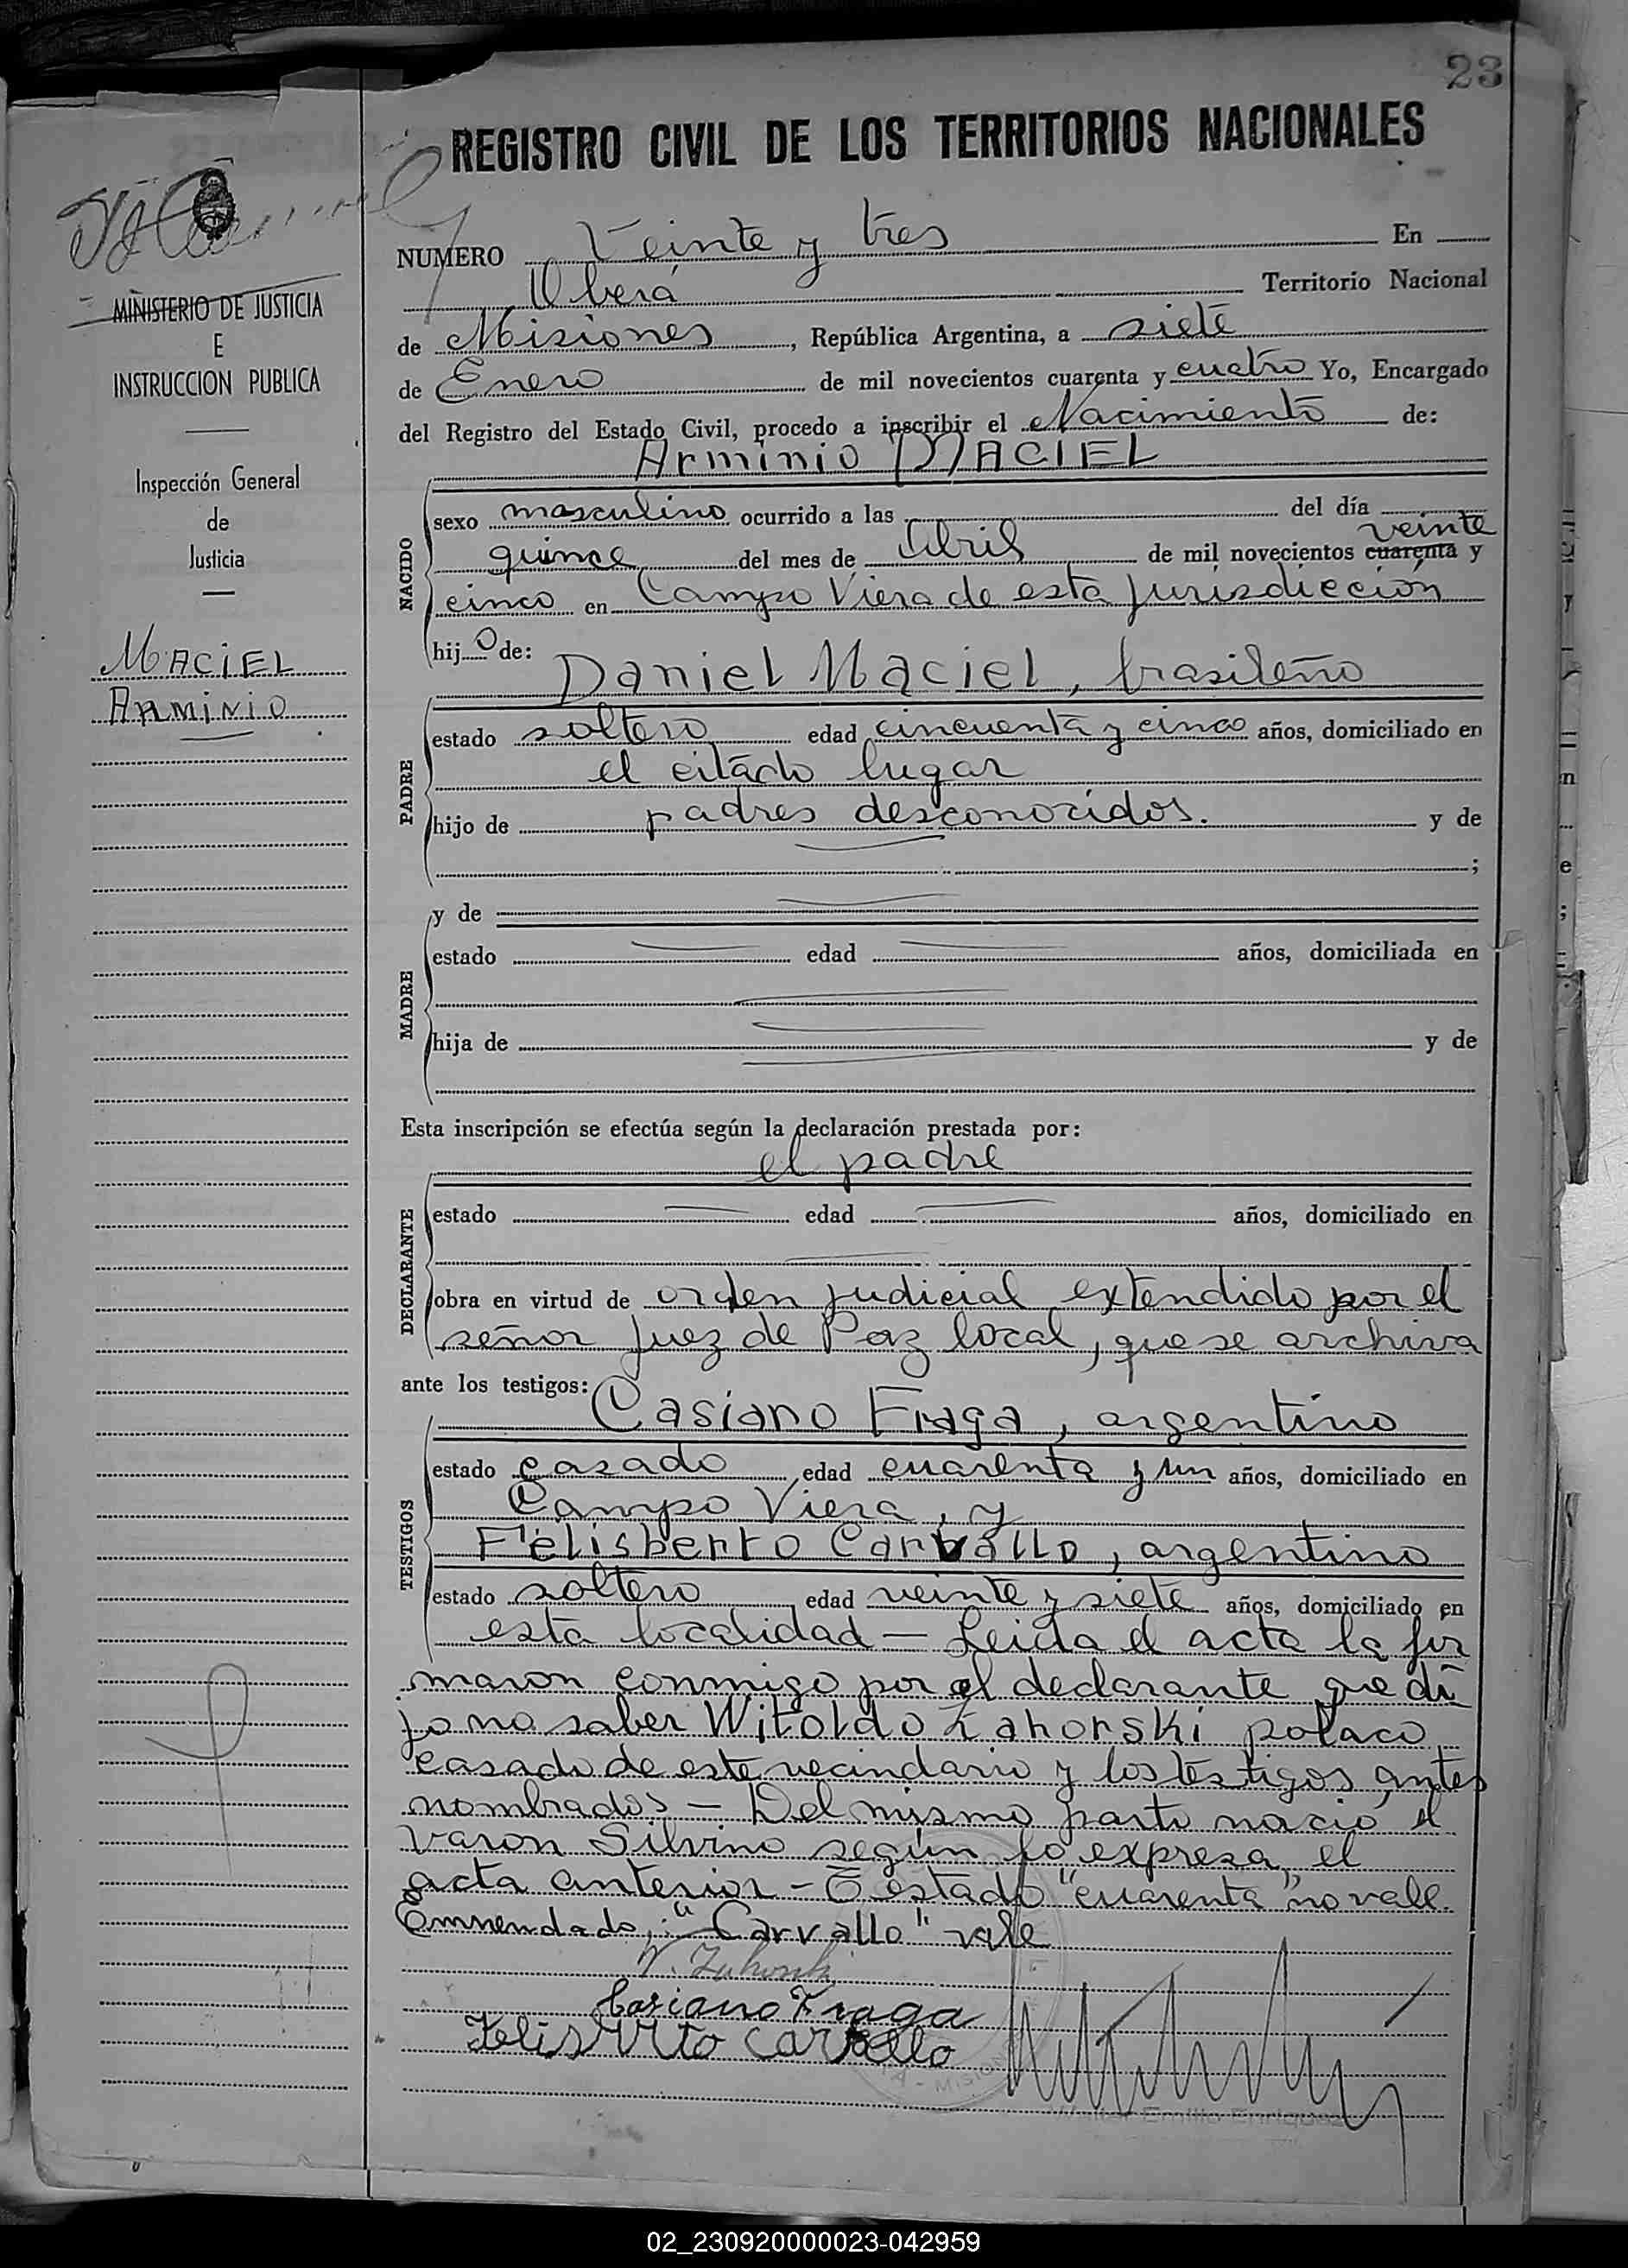 23
REGISTRO CIVIL DE LOS TERRITORIOS NACIONALES
MINISTERIO DE JUSTICIA
E
INSTRUCCION PUBLICA
Inspección General
de
Justicia
MACIEL
ARMINIO
NUMERO Veinte y tres En
Oberá Territorio Nacional
de Misiones, República Argentina, a siete
de Enero de mil novecientos cuarenta y cuatro Yo, Encargado
del Registro del Estado Civil, procedo a inscribir el Nacimiento de:
Arminio MACIEL
NACIDO
sexo masculino ocurrido a las del día
veinte
quince del mes de Abril de mil novecientos cuarenta y
cinco en Campo Viera de esta jurisdicción
hijo de:
Daniel Maciel, brasileño
PADRE
estado soltero edad cincuenta y cinco años, domiciliado en
el citado lugar
hijo de padres desconocidos. y de
;
MADRE
y de
estado edad años, domiciliada en
hija de y de
Esta inscripción se efectúa según la declaración prestada por:
el padre
DECLARANTE
estado edad años, domiciliado en
obra en virtud de orden judicial extendido por el
señor Juez de Paz local, que se archiva
ante los testigos:
Casiano Fraga, argentino
TESTIGOS
estado casado edad cuarenta y un años, domiciliado en
Campo Viera, y
Felisberto Carvallo, argentino
estado soltero edad veinte y siete años, domiciliado en
esta localidad — Leida el acta la fir
maron conmigo por el declarante que di
jo no saber Witoldo Zahorski polaco
casado de este vecindario y los testigos antes
nombrados — Del mismo parto nació el
varon Silvino según lo expresa el
acta anterior - Testado "cuarenta" no vale.
Enmendado: "Carvallo" vale
Casiano Fraga
Felisberto Carvallo
MISIONES
Emilio Enriquez
02_230920000023-042959